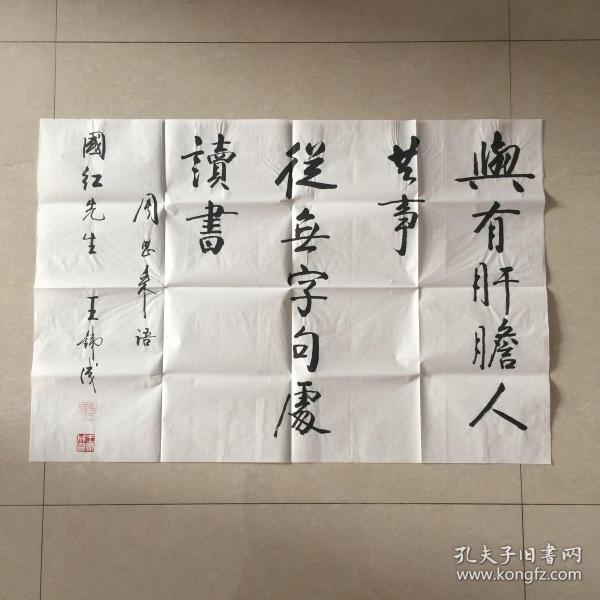 與有肝膽人
共事
從無字句處
讀書
周恩来语
國红先生
王
孔夫子旧书网
www.kongfz.com